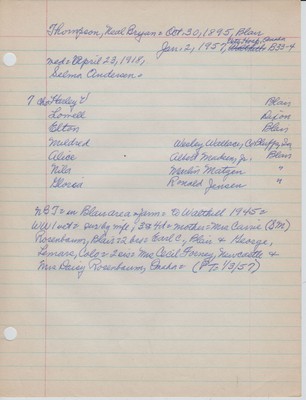 Thompson, Neal Bryan = Oct. 30, 1895, Blair
Jan. 2, 1957, Hosp. Omaha B33-4
med = April 23, 1918,
Selma Andersen +
7 ch = Harley V Blair
Lowell Dixon
Elton Blair
Mildred Wesley Wallace, Co Bluffs, Ia
Alice Albert Madsen, Jr. Blair
Nila Merlin Matzen "
Glorea Ronald Jensen "
NBT = in Blair area = farm = to Walthill 1945 =
WW I vet = surv by wife; 3 = mother = Mrs Carrie (SM)
Rosenbaum, Blair = 2 bros = Earl C., Blair & George,
Lamars, Colo = 2 sis = Mrs Cecil Forney, Newcastle &
Mrs Daisy Rosenbaum, Omaha = (P.T. 1/3/57)